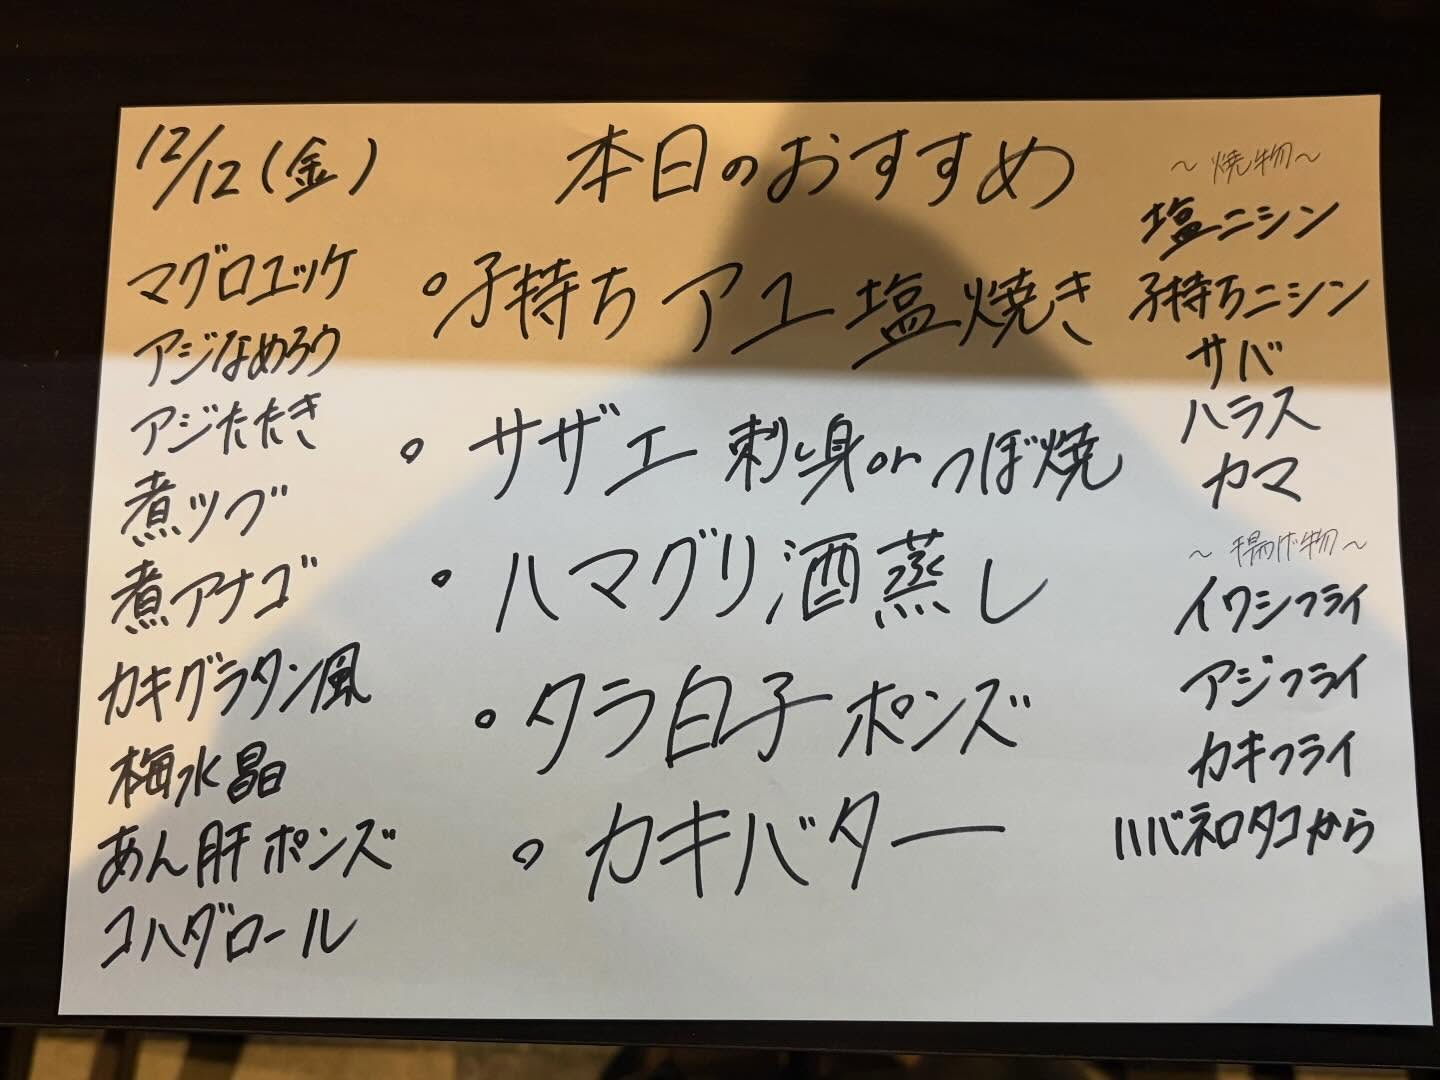 12/12(金)
本日のおすすめ
マグロユッケ
アジなめろう
アジたたき
煮ツブ
煮アナゴ
カキグラタン風
梅水晶
あん肝ポンズ
コハダロール
・子持ちアユ塩焼き
・サザエ 刺し身orつぼ焼
・ハマグリ酒蒸し
・タラ白子ポンズ
・カキバター
〜焼物〜
塩ニシン
子持ちニシン
サバ
ハラス
カマ
〜揚げ物〜
イワシフライ
アジフライ
カキフライ
ハバネロタコから